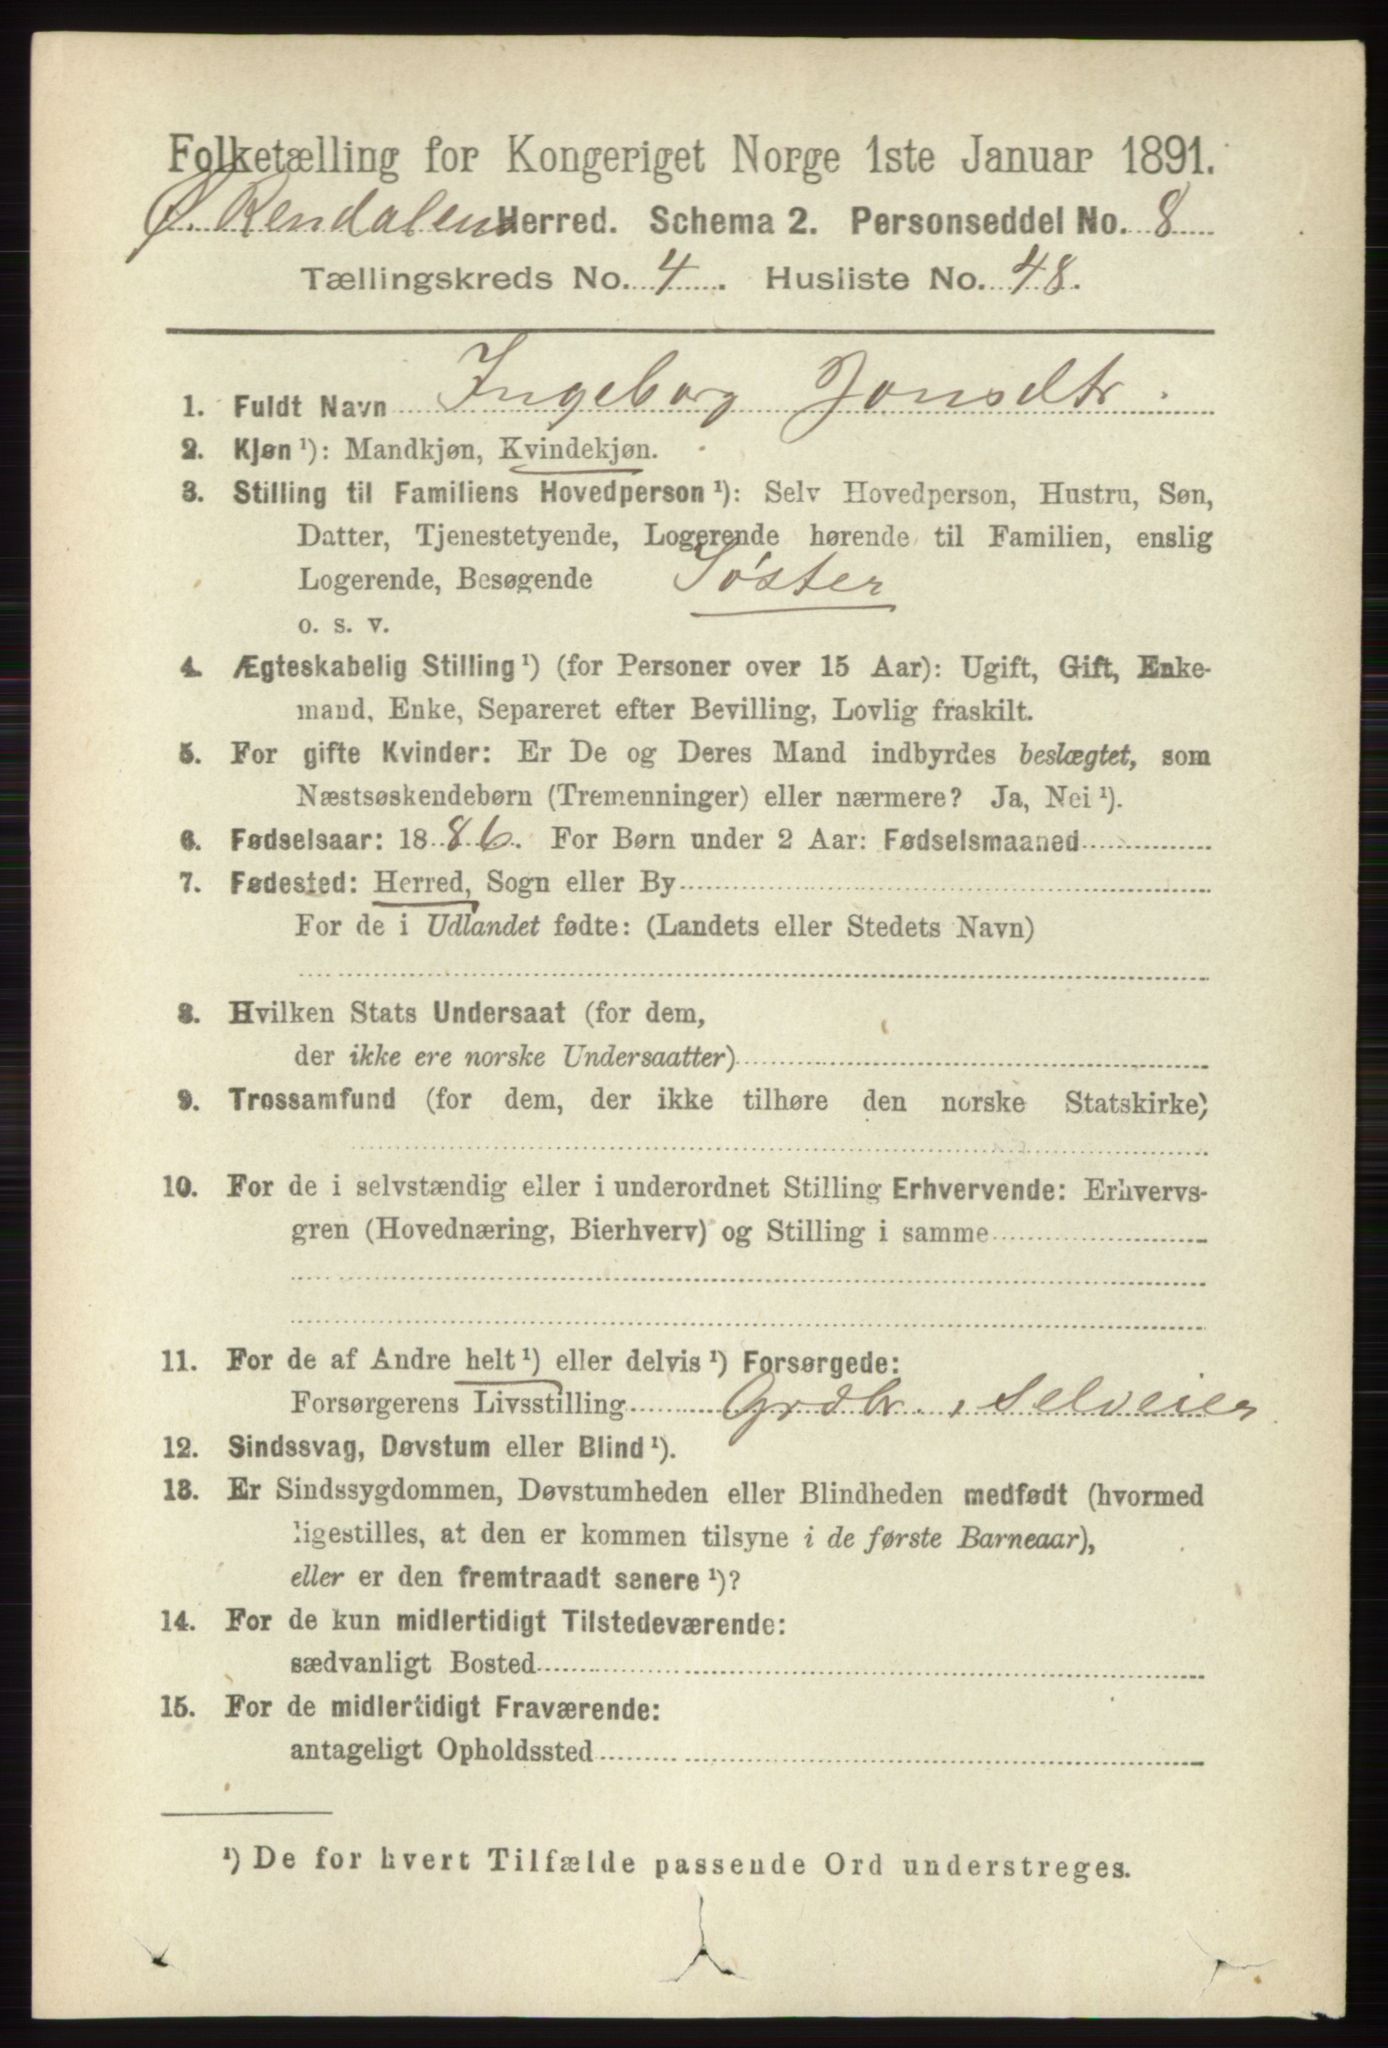 Folketælling for Kongeriget Norge 1ste Januar 1891.
Ø. Rendalen Herred. Schema 2. Personseddel No. 8
Tællingskreds No. 4. Husliste No. 48.
1. Fuldt Navn Ingeborg Jonsdtr.
2. Kjøn ¹): Mandkjøn, Kvindekjøn.
3. Stilling til Familiens Hovedperson ¹): Selv Hovedperson, Hustru, Søn,
Datter, Tjenestetyende, Logerende hørende til Familien, enslig
Logerende, Besøgende Søster
o. s. v.
4. Ægteskabelig Stilling ¹) (for Personer over 15 Aar): Ugift, Gift, Enke-
mand, Enke, Separeret efter Bevilling, Lovlig fraskilt.
5. For gifte Kvinder: Er De og Deres Mand indbyrdes beslægtet, som
Næstsøskendebørn (Tremenninger) eller nærmere? Ja, Nei ¹).
6. Fødselsaar: 1886. For Børn under 2 Aar: Fødselsmaaned
7. Fødested: Herred, Sogn eller By
For de i Udlandet fødte: (Landets eller Stedets Navn)
8. Hvilken Stats Undersaat (for dem,
der ikke ere norske Undersaatter)
9. Trossamfund (for dem, der ikke tilhøre den norske Statskirke)
10. For de i selvstændig eller i underordnet Stilling Erhvervende: Erhvervs-
gren (Hovednæring, Bierhverv) og Stilling i samme
11. For de af Andre helt ¹) eller delvis ¹) Forsørgede:
Forsørgerens Livsstilling Grdbr., Selveier
12. Sindssvag, Døvstum eller Blind ¹).
13. Er Sindssygdommen, Døvstumheden eller Blindheden medfødt (hvormed
ligestilles, at den er kommen tilsyne i de første Barneaar),
eller er den fremtraadt senere ¹)?
14. For de kun midlertidigt Tilstedeværende:
sædvanligt Bosted
15. For de midlertidigt Fraværende:
antageligt Opholdssted
¹) De for hvert Tilfælde passende Ord understreges.